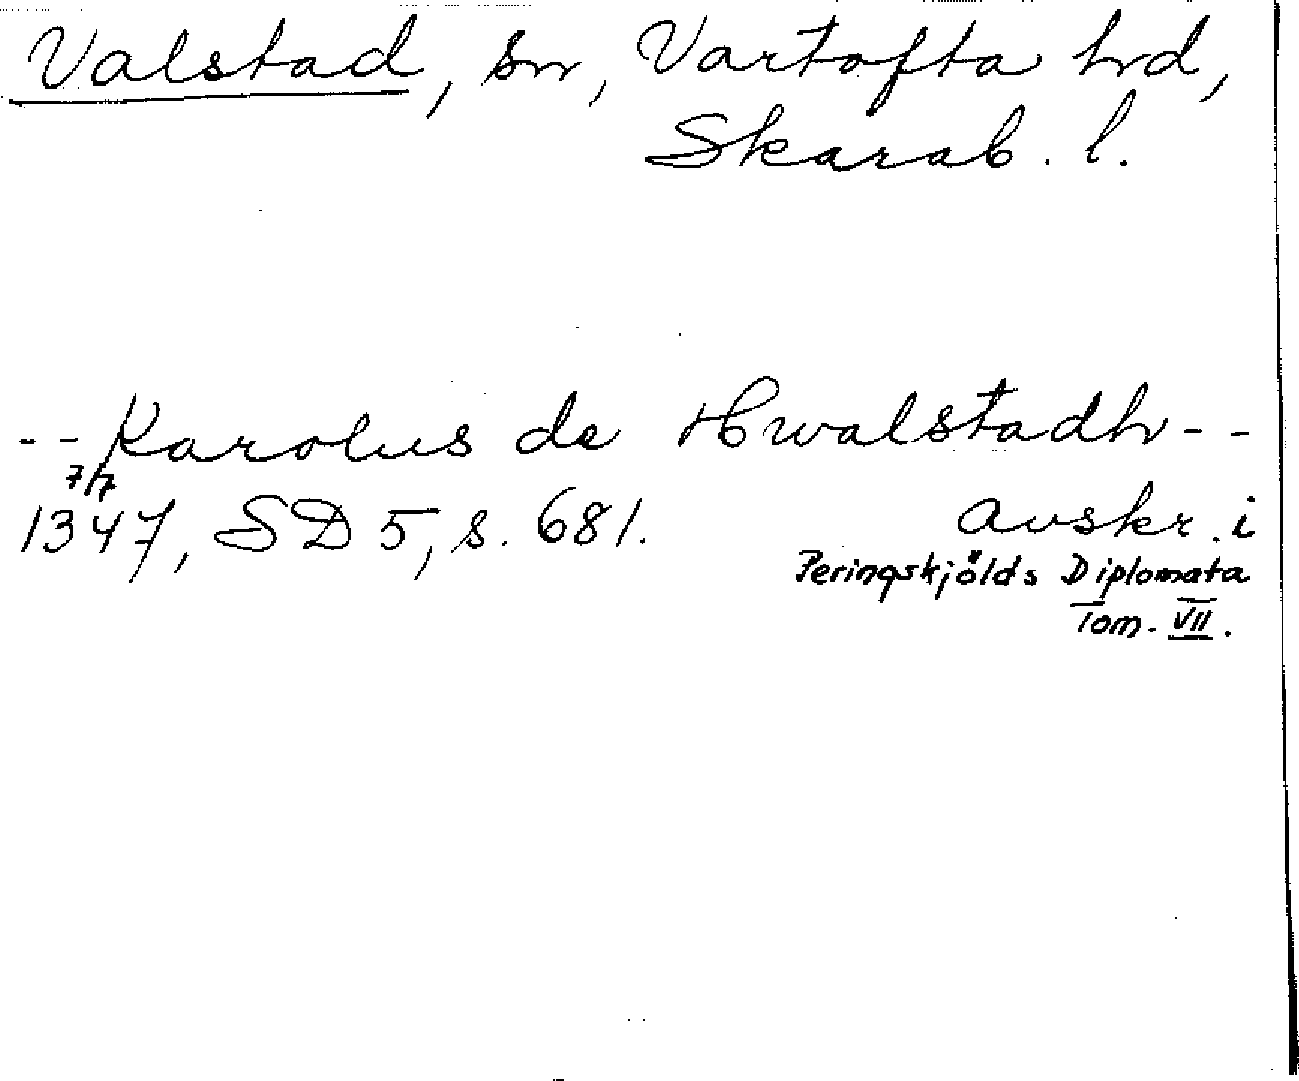 Valstad, sn, Vartofta hrd,
Skarab. l.
--Karolus de Hwalstadh--
7/7
1347, SD 5, s. 681. Avskr. i
Peringskjölds Diplomata
Tom. VII.